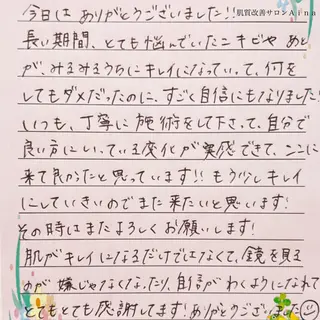 肌質改善サロンAina
今日は ありがとうございました!!
長い期間、とても悩んでいたニキビや あと
が、みるみるうちにキレイになっていって、何を
してもダメだったのに、すごく自信にもなりました!
いつも、丁寧に施術をして下さって、自分で
良い方にいっている変化が実感できて、ここに
来て良かったと思っています!! もう少しキレイ
にしていきたいのでまた来たいと思います!
その時はまたよろしくお願いします!
肌がキレイになるだけではなくて、鏡を見る
のが嫌じゃなくなったり、自信がわくようになれて
とてもとても感謝してます!ありがとうございました